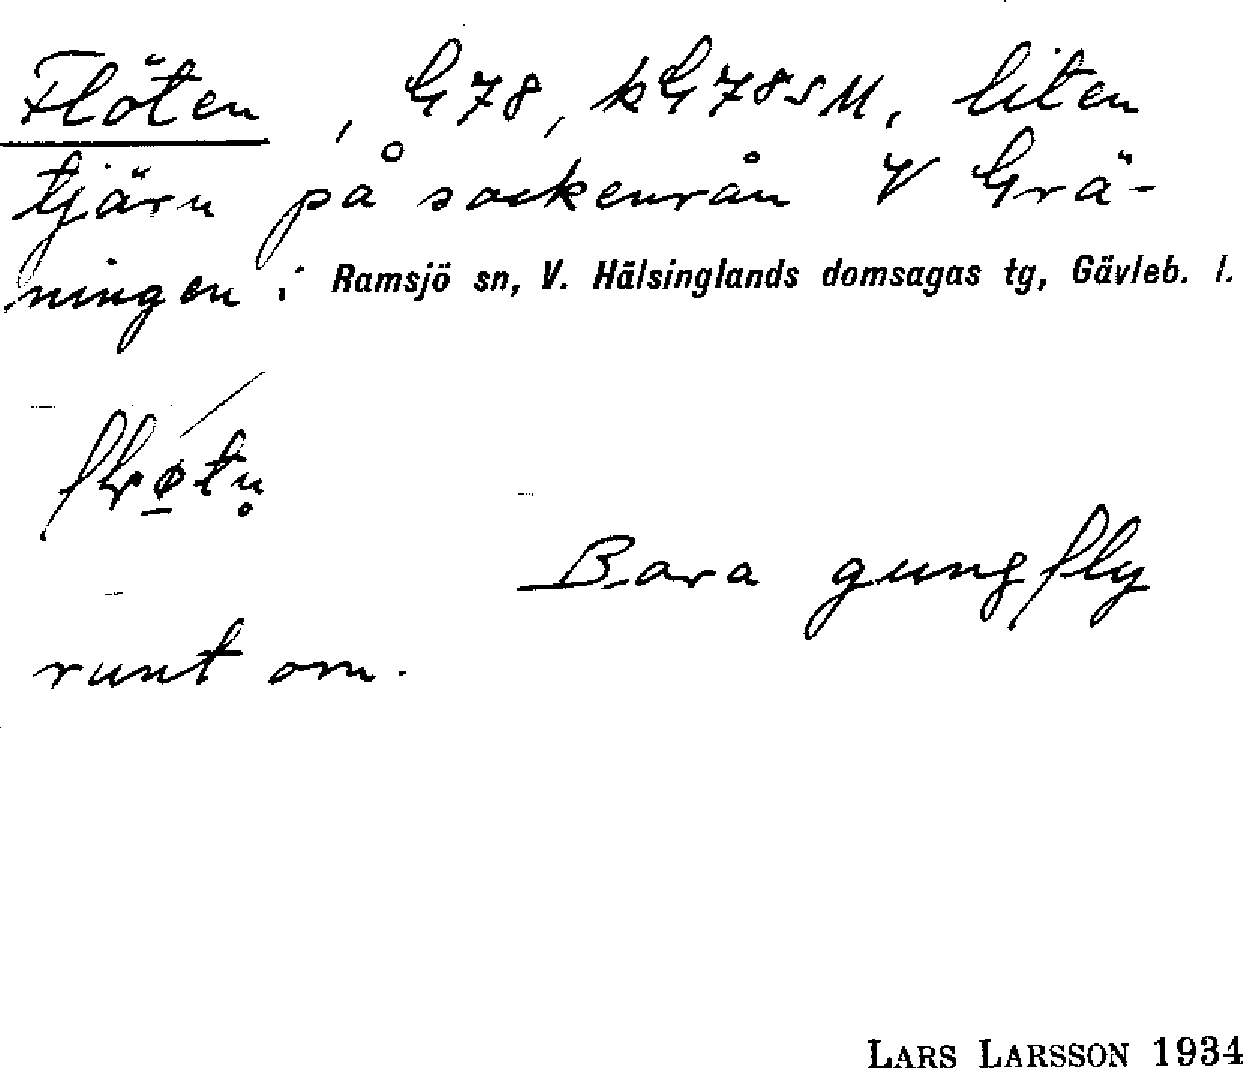 Flöten, G78, kG78SM, liten
tjärn på sockenrån V Grä-
ningen i Ramsjö sn, V. Hälsinglands domsagas tg, Gävleb. l.
Bara gungfly
runt om.
LARS LARSSON 1934